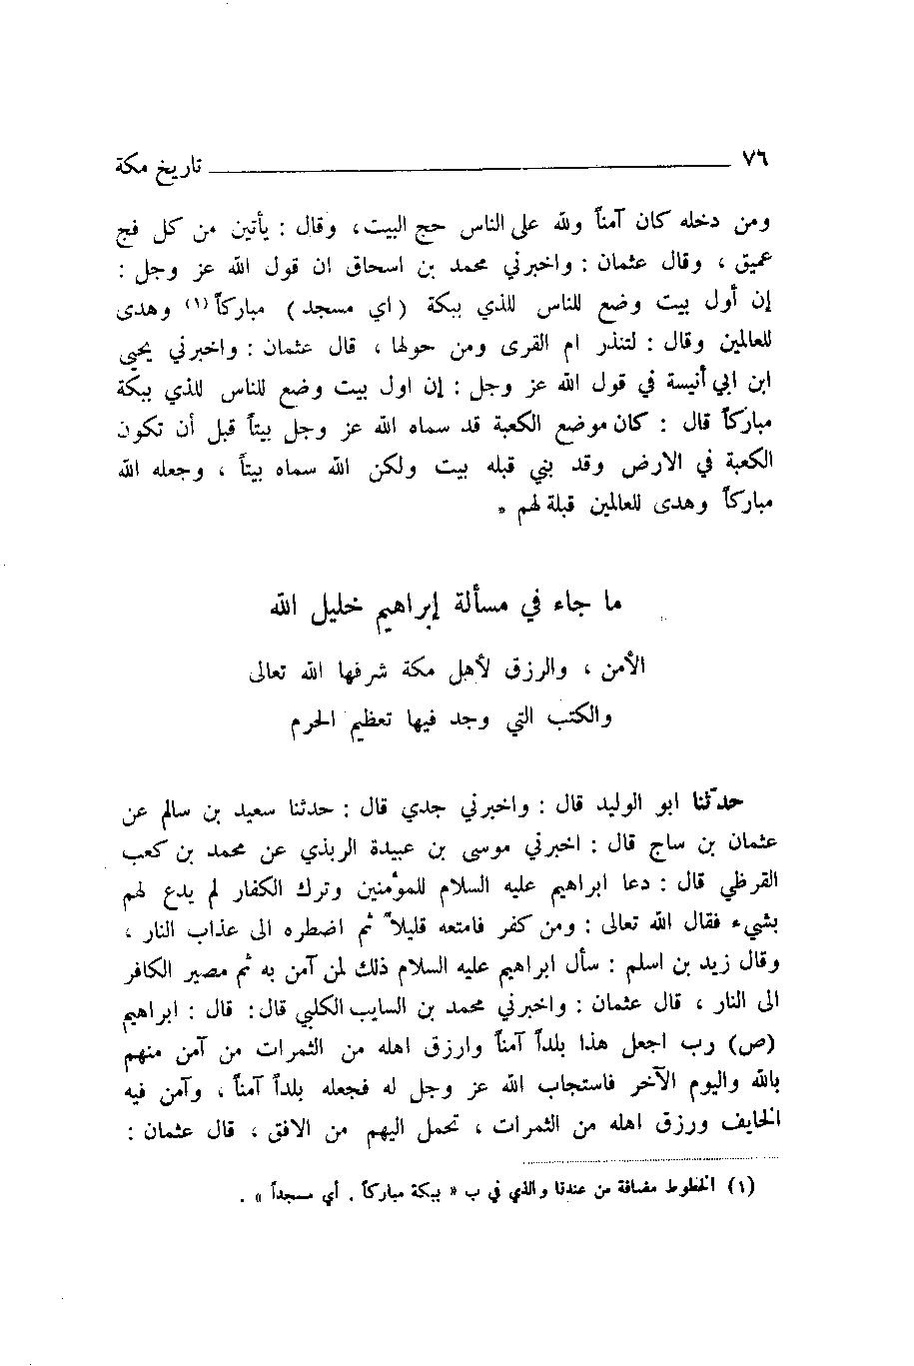 ٧٦ تاريخ مكة
ومن دخله كان آمناً ولله على الناس حج البيت، وقال : يأتين من كل فج
عميق ، وقال عثمان : واخبرني محمد بن اسحاق ان قول الله عز وجل :
إن أول بيت وضع للناس للذي ببكة ( اي مسجد ) مباركاً (١) وهدى
للعالمين وقال : لتنذر ام القرى ومن حولها ، قال عثمان : واخبرني يحيى
ابن ابي أنيسة في قول الله عز وجل : إن اول بيت وضع للناس للذي ببكة
مباركاً قال : كان موضع الكعبة قد سماه الله عز وجل بيتاً قبل أن تكون
الكعبة في الارض وقد بني قبله بيت ولكن الله سماه بيتاً ، وجعله الله
مباركاً وهدى للعالمين قبلة لهم *
ما جاء في مسألة إبراهيم خليل الله
الأمن ، والرزق لأهل مكة شرفها الله تعالى
والكتب التي وجد فيها تعظيم الحرم
حدّثنا ابو الوليد قال : واخبرني جدي قال : حدثنا سعيد بن سالم عن
عثمان بن ساج قال : اخبرني موسى بن عبيدة الربذي عن محمد بن كعب
القرظي قال : دعا ابراهيم عليه السلام للمؤمنين وترك الكفار لم يدع لهم
بشيء فقال الله تعالى : ومن كفر فامتعه قليلاً ثم اضطره الى عذاب النار ،
وقال زيد بن اسلم : سأل ابراهيم عليه السلام ذلك لمن آمن به ثم مصير الكافر
الى النار ، قال عثمان : واخبرني محمد بن السايب الكلبي قال: قال : ابراهيم
(ص) رب اجعل هذا بلداً آمناً وارزق اهله من الثمرات من آمن منهم
بالله واليوم الآخر فاستجاب الله عز وجل له فجعله بلداً آمناً ، وآمن فيه
الخايف ورزق اهله من الثمرات ، تحمل اليهم من الافق ، قال عثمان :
(١) الخطوط مضافة من عندنا والذي في ب « ببكة مباركاً . أي مسجداً » .